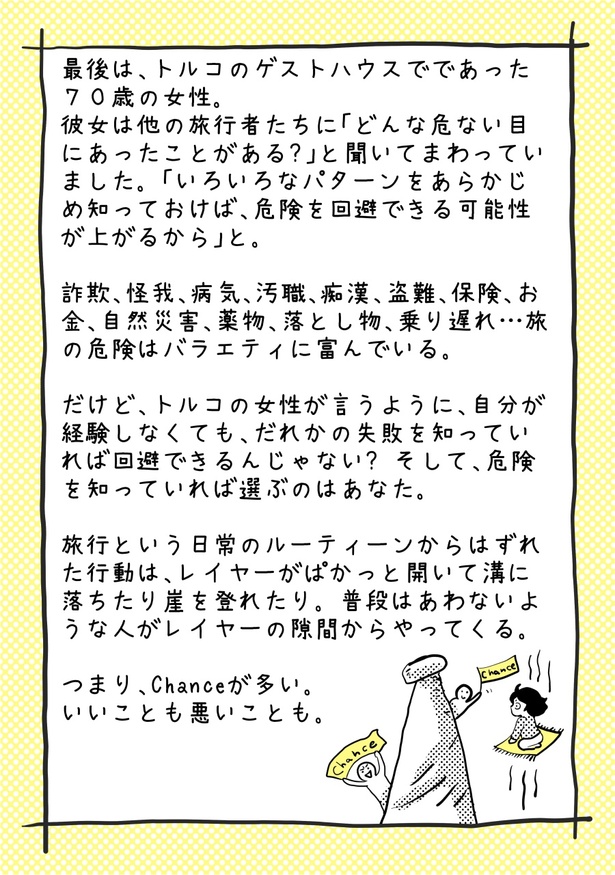 最後は、トルコのゲストハウスでであった
７０歳の女性。
彼女は他の旅行者たちに「どんな危ない目
にあったことがある?」と聞いてまわってい
ました。「いろいろなパターンをあらかじ
め知っておけば、危険を回避できる可能性
が上がるから」と。
詐欺、怪我、病気、汚職、痴漢、盗難、保険、お
金、自然災害、薬物、落とし物、乗り遅れ…旅
の危険はバラエティに富んでいる。
だけど、トルコの女性が言うように、自分が
経験しなくても、だれかの失敗を知ってい
れば回避できるんじゃない? そして、危険
を知っていれば選ぶのはあなた。
旅行という日常のルーティーンからはずれ
た行動は、レイヤーがぱかっと開いて溝に
落ちたり崖を登れたり。普段はあわないよ
うな人がレイヤーの隙間からやってくる。
つまり、Chanceが多い。
いいことも悪いことも。
Chance
Chance